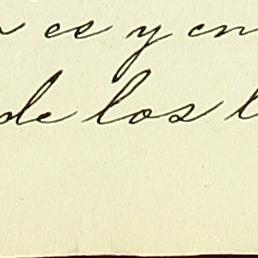 es y en
de los